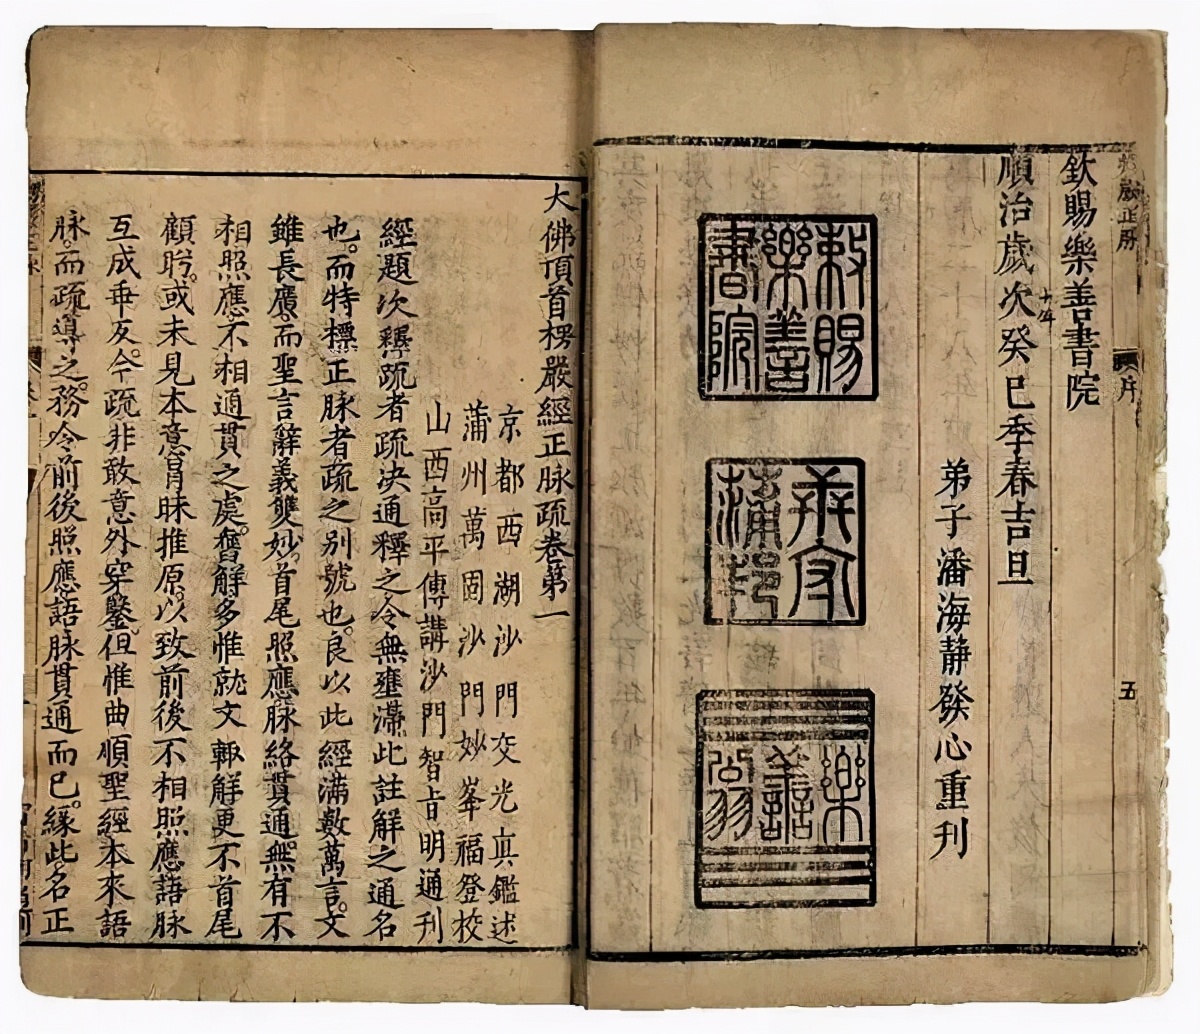 楞嚴正脉
序
五
欽賜樂善書院
順治歲次癸巳季春吉旦
十年
弟子潘海静發心重刊
敕賜樂善書院
樂善翁
大佛頂首楞嚴經正脉疏卷第一
京都西湖沙門交光真鑑述
蒲州萬固沙門妙峯福登校
山西高平傳講沙門智旹明通刊
經題次釋疏者疏決通釋之令無壅滯此註解之通名
也。而特標正脉者疏之别號也。良以此經滿數萬言。文
雖長廣。而聖言辭義雙妙。首尾照應。脉絡貫通。無有不
相照應不相通貫之處。舊解多惟就文輙解更不首尾
顧盻。或未見本意肯昧推原。以致前後不相照應語脉
互成乖反。今疏非敢意外穿鑿。但惟曲順聖經本來語
脉。而疏導之。務令前後照應語脉貫通而已。緣此名正